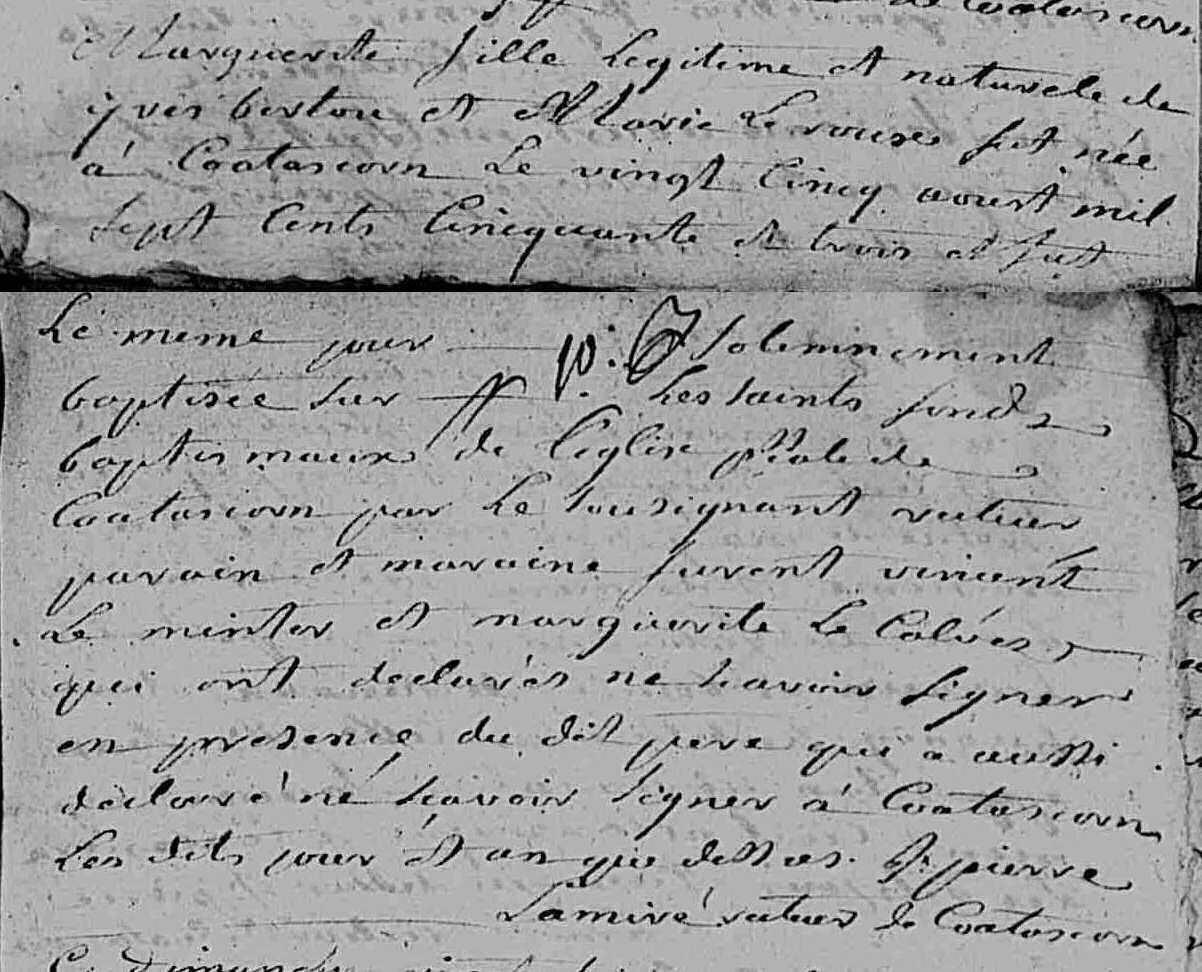 de Coatascorn
Marguerite fille legitime et naturele de
yves bertou et Marie Le roux fut née
à Coatascorn Le vingt Cinq aoust mil
sept Cents Cinquante et trois et fut
Le meme jour solemnement
baptisée sur Les saints fonds
baptismaux de l'eglise pĺale de
Coatascorn par Le sousignant recteur
parain et maraine furent vincent
Le mintor et marguerite Le Calvès
qui ont declarés ne scavoir signer
en presence du dit pere qui a aussi
declaré né scavoir signer à Coatascorn
Les dits jour et an que dessus. pierre
Lamiré recteur de Coatascorn
Ce dimanche